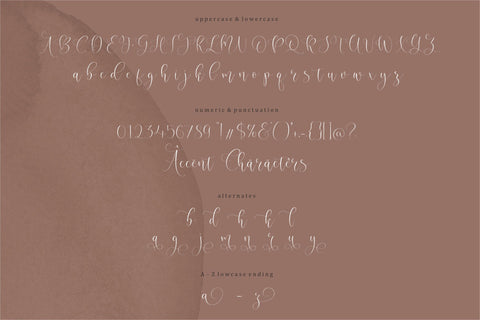 uppercase & lowercase
A B C D E F G H I J K L M N O P Q R S T U V W X Y Z
a b c d e f g h i j k l m n o p q r s t u v w x y z
numeric & punctuation
0123456789"!//#$%&'()*+,-.{}[]|@?
Accent Characters
alternates
b d h k l
a g j m n r u y
A - Z lowcase ending
a - z